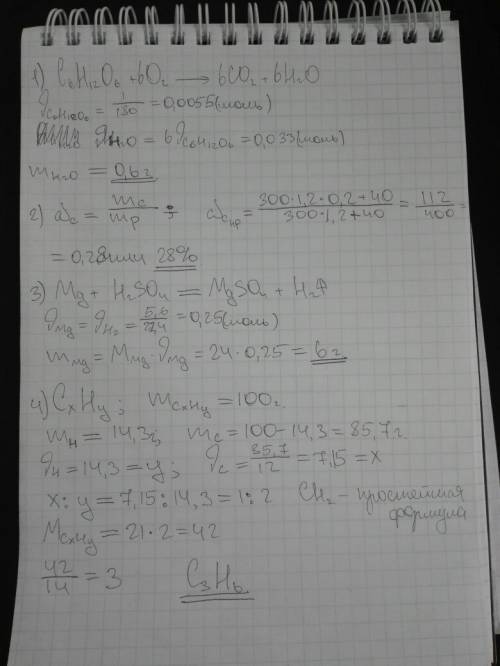 1) C₆H₁₂O₆ + 6O₂ ⟶ 6CO₂ + 6H₂O
ϑC₆H₁₂O₆ = 1/180 = 0,0055 (моль)
ϑH₂O = 6ϑC₆H₁₂O₆ = 0,033 (моль)
mH₂O = 0,6г.
2) ωс = mс/mр ; ωснр = (300·1,2·0,2+40)/(300·1,2+40) = 112/400 =
= 0,28 или 28%
3) Mg + H₂SO₄ = MgSO₄ + H₂↑
ϑMg = ϑH₂ = 5,6/22,4 = 0,25 (моль)
mMg = MMg · ϑMg = 24 · 0,25 = 6г.
4) CxHy ; mCxHy = 100г.
mH = 14,3г; mC = 100 − 14,3 = 85,7г.
ϑH = 14,3 = y ; ϑC = 85,7/12 = 7,15 = x
x : y = 7,15 : 14,3 = 1 : 2 CH₂ – простейшая
формула
MCxHy = 21 · 2 = 42
42/14 = 3 C₃H₆